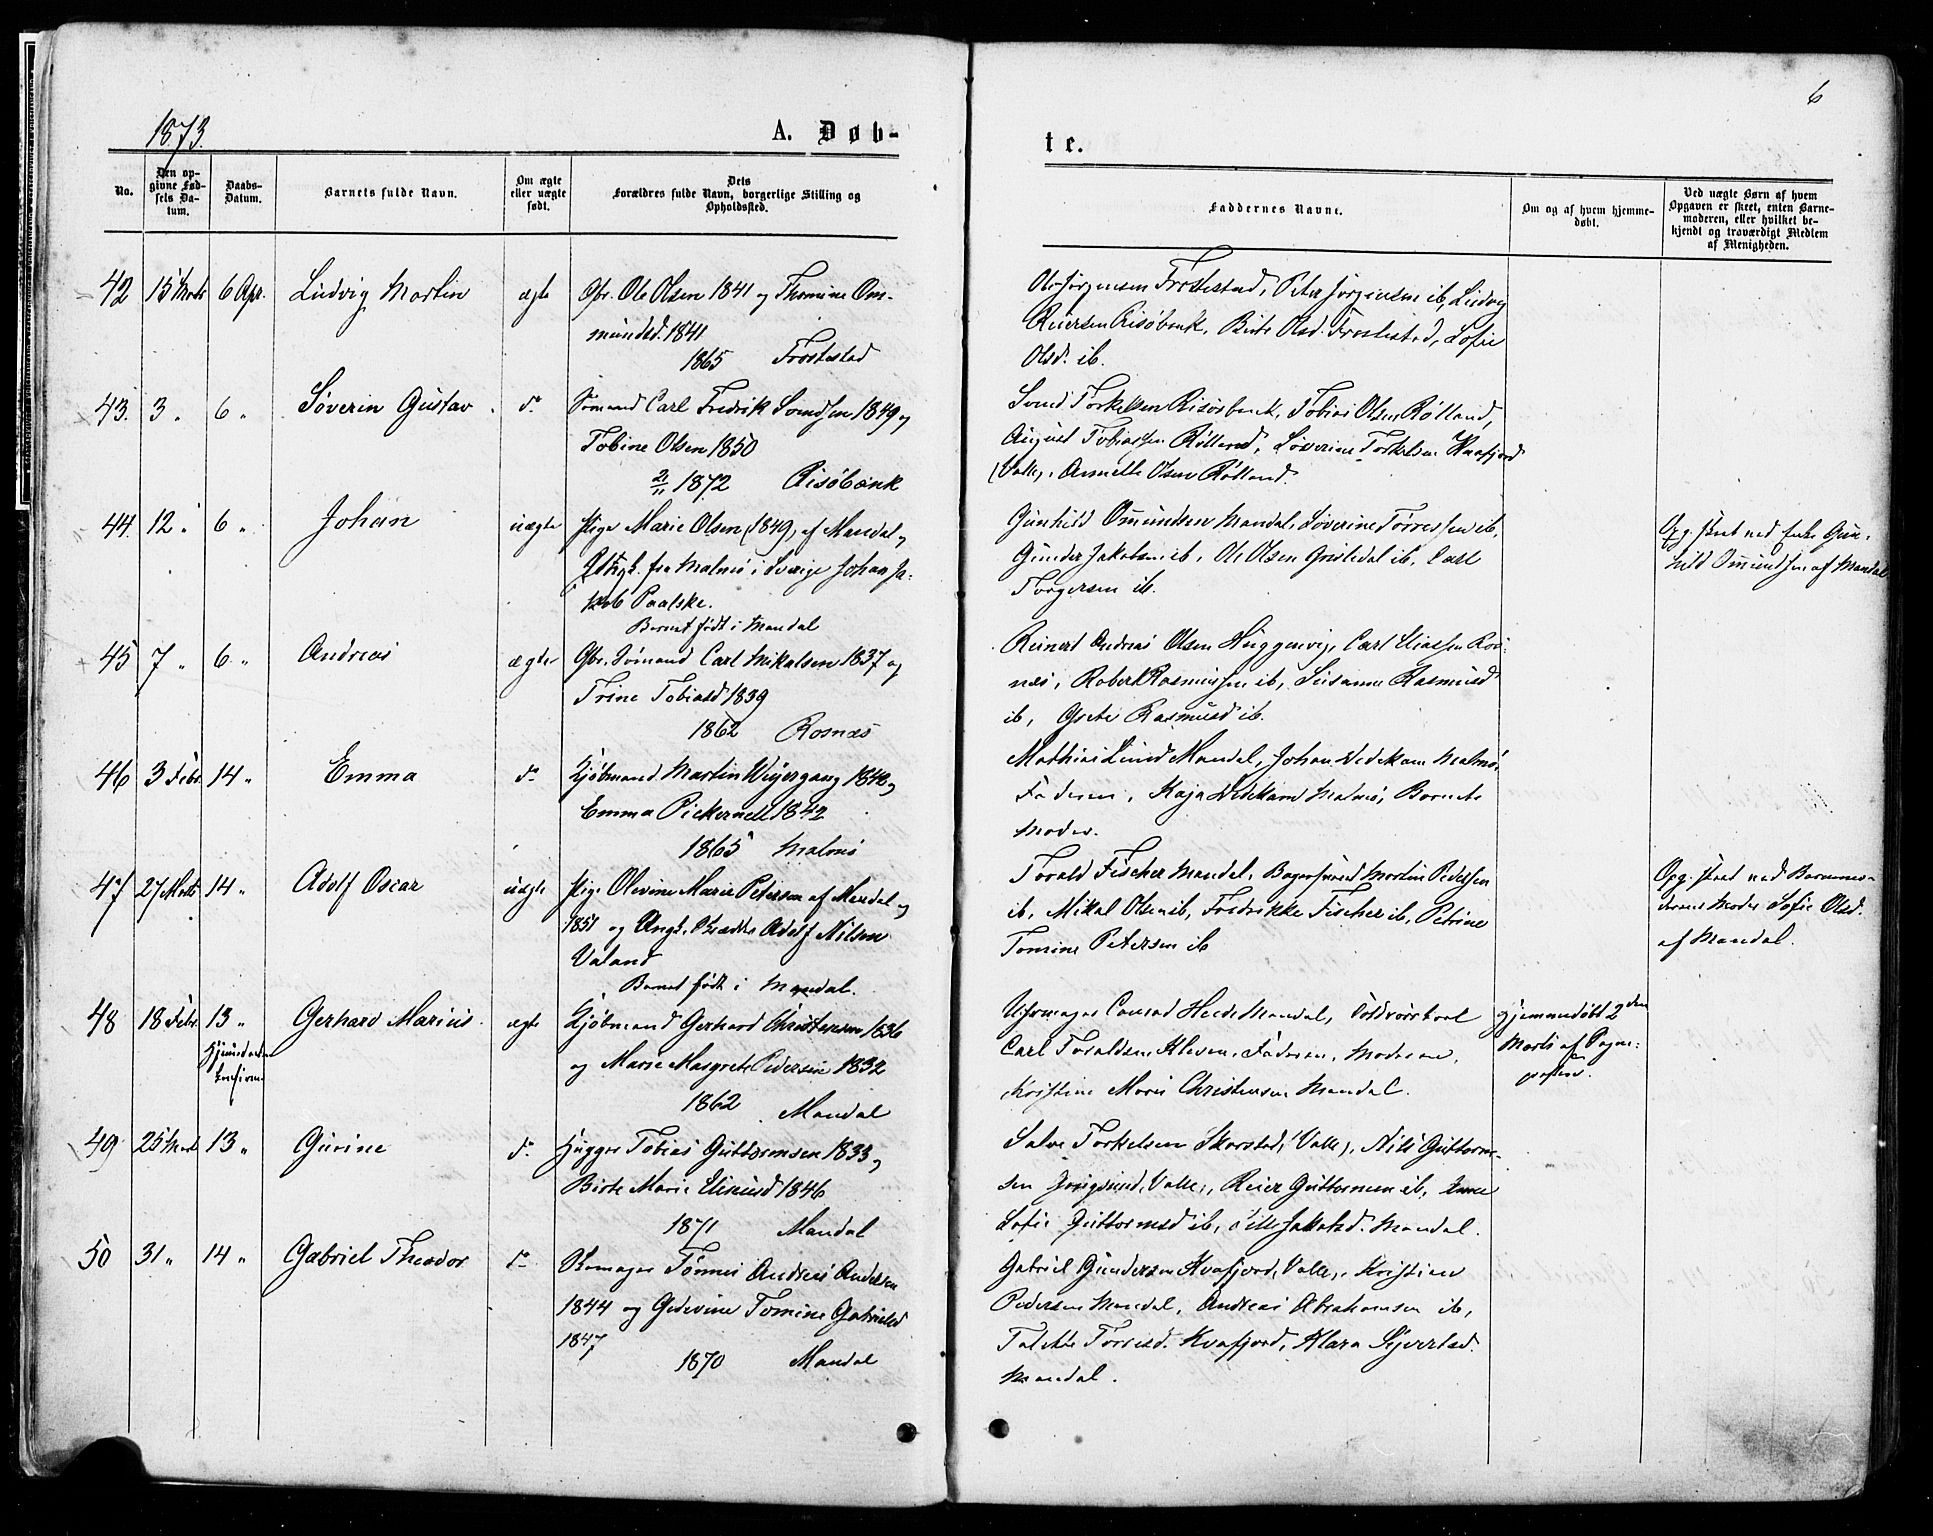 6
1873.
A. Døb-
te.
No.
Den op-
givne Fød-
sels Da-
tum.
Daabs-
Datum.
Barnets fulde Navn.
Om ægte
eller uægte
født.
Dets
Forældres fulde Navn, borgerlige Stilling og
Opholdssted.
Faddernes Navne.
Om og af hvem hjemme-
døbt.
Ved uægte Børn af hvem
Opgaven er skeet, enten Barne-
moderen, eller hvilket be-
kjendt og troværdigt Medlem
af Menigheden.
42 15 Marts 6 Apr. Ludvig Martin ægte Gbr. Ole Olsen 1841 og Thomine Om-
mundsd. 1841
1865 Frøstestad
Ole Jørgensen Frøstestad, Peter Jørgensen ib, Ludvig
Reiersen Risøbank, Birte Olsd. Frøstestad, Sofie
Olsd. ib.
43. 3 " 6 " Søverin Gustav do Sømand Carl Fredrik Svendsen 1849 og
Tobine Olsen 1850
21/11 1872 Risøbank
Svend Torkelsen Risøbank, Tobias Olsen Rølland,
August Tobiassen Rølland, Søverine Torkelsen Kvafjord
(Valle), Annette Olsen Rølland.
44. 12 " 6 " Johan uægte Pige Marie Olsen (1849) af Mandal og
fra Malmø i Sverige Johan Ja-
kob Paalske.
Barnet født i Mandal
Gunhild Omundsen Mandal, Søverine Tørressen ib,
Gunder Jakobsen ib, Ole Olsen ib, Carl
Torgersen ib.
Opg. skeet ved Enke Gun-
hild Omundsen af Mandal
45 7 " 6 " Andreas ægte Gbr. Sømand Carl Mikalsen 1837 og
Trine Tobiasd 1839
1862 Rosnæs
Reinert Andreas Olsen Huggenvig, Carl Eliassen Ros-
næs, Robert Rasmussen ib, Susanne Rasmusd
ib, Grete Rasmusd ib.
46 3 Febr. 14 " Emma do Kjøbmand Martin Weyergang 1840 og
Emma Pickernell 1842
1865 Malmø
Mathias Lund Mandal, Johan Vedekam Malmø,
Faderen, Kaja Vedekam Malmø, Barnets
Moder.
47 27 Marts 14 " Adolf Oscar uægte Pige Olevine Marie Petersen af Mandal og
1851 og Ungk. Adolf Nilsen
Valand
Barnet født i Mandal.
Torald Fischer Mandal, Martin Pedersen
ib, Mikal Olsen ib, Fredrikke Fischer ib, Petrine
Tomine Petersen ib
Opg. skeet ved Barnemo-
derens Moder Sofie Olsd.
af Mandal.
48 18 Febr. 13 " Gerhard Marius ægte Kjøbmand Gerhard Christensen 1836
og Marie Margrete Pedersen 1832
1862 Mandal
Uhrmager Conrad Heide Mandal, Toldroerskarl
Carl Toraldsen Kleven, Faderen, Moderen,
Kristine Marie Christensen Mandal.
Hjemmedøbt 2den
Marts af Sogne-
presten.
49 25 Marts 13 " Gurine do Hugger Tobias Guttormsen 1833 og
Birte Marie Eliasd 1846
1871 Mandal
Salve Torkelsen Skorstad, (Valle), Nils Guttorm-
sen, Valle, Reier Guttormsen ib, Anne
Sofie Guttormsd ib, Jakobsd. Mandal.
50 31 " 14 " Gabriel Theodor do Tønnes Andreas Andersen
1844 og Gedevine Tomine Gabrielsd
1847
1870 Mandal
Gabriel Gundersen Kvafjord, Valle, Kristian
Pedersen Mandal, Andreas Abrahamsen ib,
Torresd. Kvafjord, Klara Sejvertsd.
Mandal.